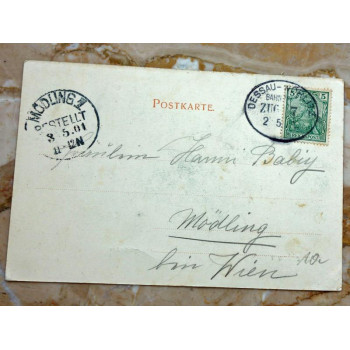 MÖDLING
BESTELLT
3.5.01
11-12N
POSTKARTE.
DESSAU-
BAHN
ZUG 7
2 5
5
Fräulein Hanni Babiy
Mödling
bin Wien